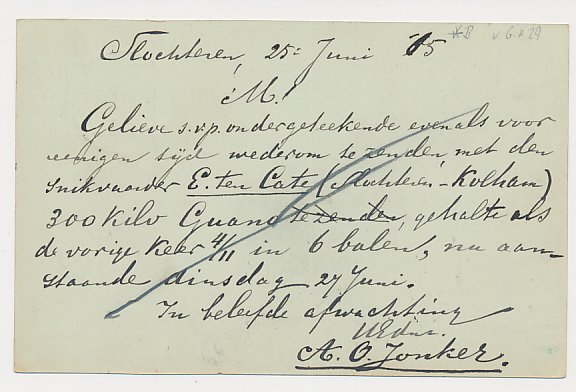 Slochteren, 25: Juni '05
M.!
Gelieve s.v.p. ondergeteekende evenals voor
eenigen tijd wederom te zenden, met den
snikvaarder E. ten Cate (Slochteren-Kolham)
300 Kilo Guano te zenden, gehalte als
de vorige Keer 4/11 in 6 balen, nu aan-
staande dinsdag 27 Juni.
In beleefde afwachting
UEdw.
A. O. Jonker.